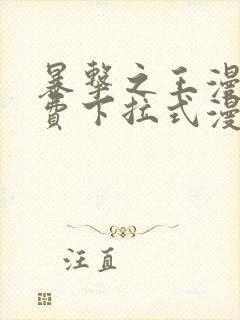 暴擊之王漫
費下拉式漫
汪直